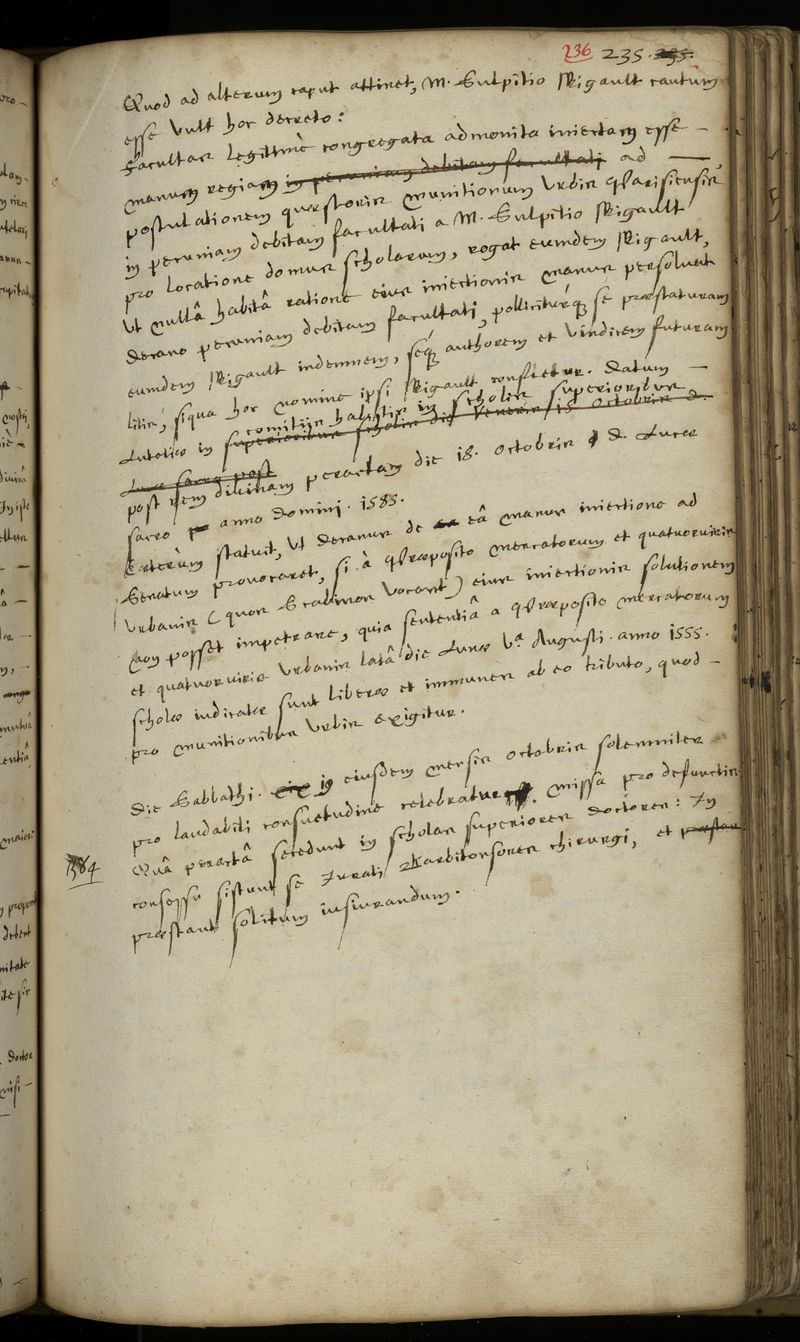 236 235. 235.
Quod ad alterum caput attinet, M. Sulpitio Rigault cautum
esse vult hoc decreto:
Facultas legitimè congregata admonita iniectam esse –
manum regiam in pecuniam debitam facultati ad —
postulationem quæstoris munitionum urbis Parisiensis
in pecuniam debitam facultati a M. Sulpitio Rigault
pro locatione domus scholarum, rogat eumdem Rigault,
ut nullâ habitâ ratione eius iniectionis manus persoluat
decano pecuniam debitam facultati, polliciturq́ue se præstaturam
eumdem Rigault indemnem, seq́ue authorem et vindicem futuram
litis, siqua hoc nomine ipsi Rigault confletur. Datum –
comitiis habitis in scholis superioribus
Lutetiæ in superioribus scholis die Veneris 18 Octobris D.
Lucæ sacra post
post rem divinam peractam die 18. Octobris D. Lucæ
sacro anno Domini. 1583.
Cæterùm statuit, ut decanus de eâ manus iniectione ad
Senatum provocaret, si à Præposito mercatorum et quatuorviris
urbanis (quos Scabinos vocant) eius iniectionis solutionem
non posset impetrare, quia sententiâ a Præposito mercatorum
et quatuorviris urbanis latâ die Lunæ Vª Augusti. anno 1555.
scholæ iudicatæ sunt liberæ et immunes ab eo tributo, quod –
pro munitionibus urbis exigitur.
Die Sabbathi. 19 eiusdem mensis Octobris solemniter
pro laudabili consuetudine celebratur missa pro defunctis
Quâ peractâ secedunt in scholas superiores doctores: In
consessu sistunt se Iurati Barbitonsores chirurgi, et præstant
1584
præstant solitum iusiurandum.